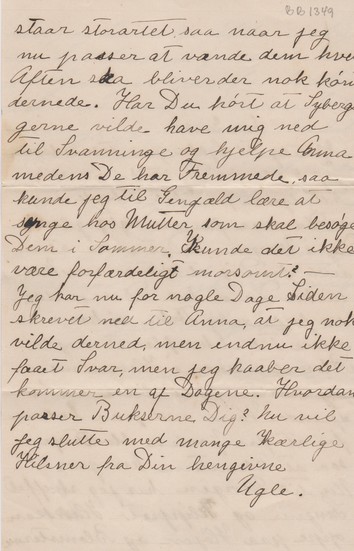 BB1349
staar storartet, saa naar jeg
nu passer at vande dem hver
Aften saa bliver der nok kön
dernede. Har Du hört at Syberg
gerne vilde have mig ned
til Svanninge og hjelpe Anna
medens De har Fremmede, saa
kunde jeg til Gengæld lære at
synge hos Mutter, som skal besøge
Dem i Sommer, Kunde det ikke
være forfærdeligt morsomt? —
Jeg har nu for nogle Dage Siden
skrevet ned til Anna, at jeg nok
vilde derned, men endnu ikke
faaet Svar, men jeg haaber det
kommer en af Dagene. Hvordan
passer Bukserne Dig? Nu vil
jeg slutte med mange Kærlige
Hilsner fra Din hengivne
Ugle.